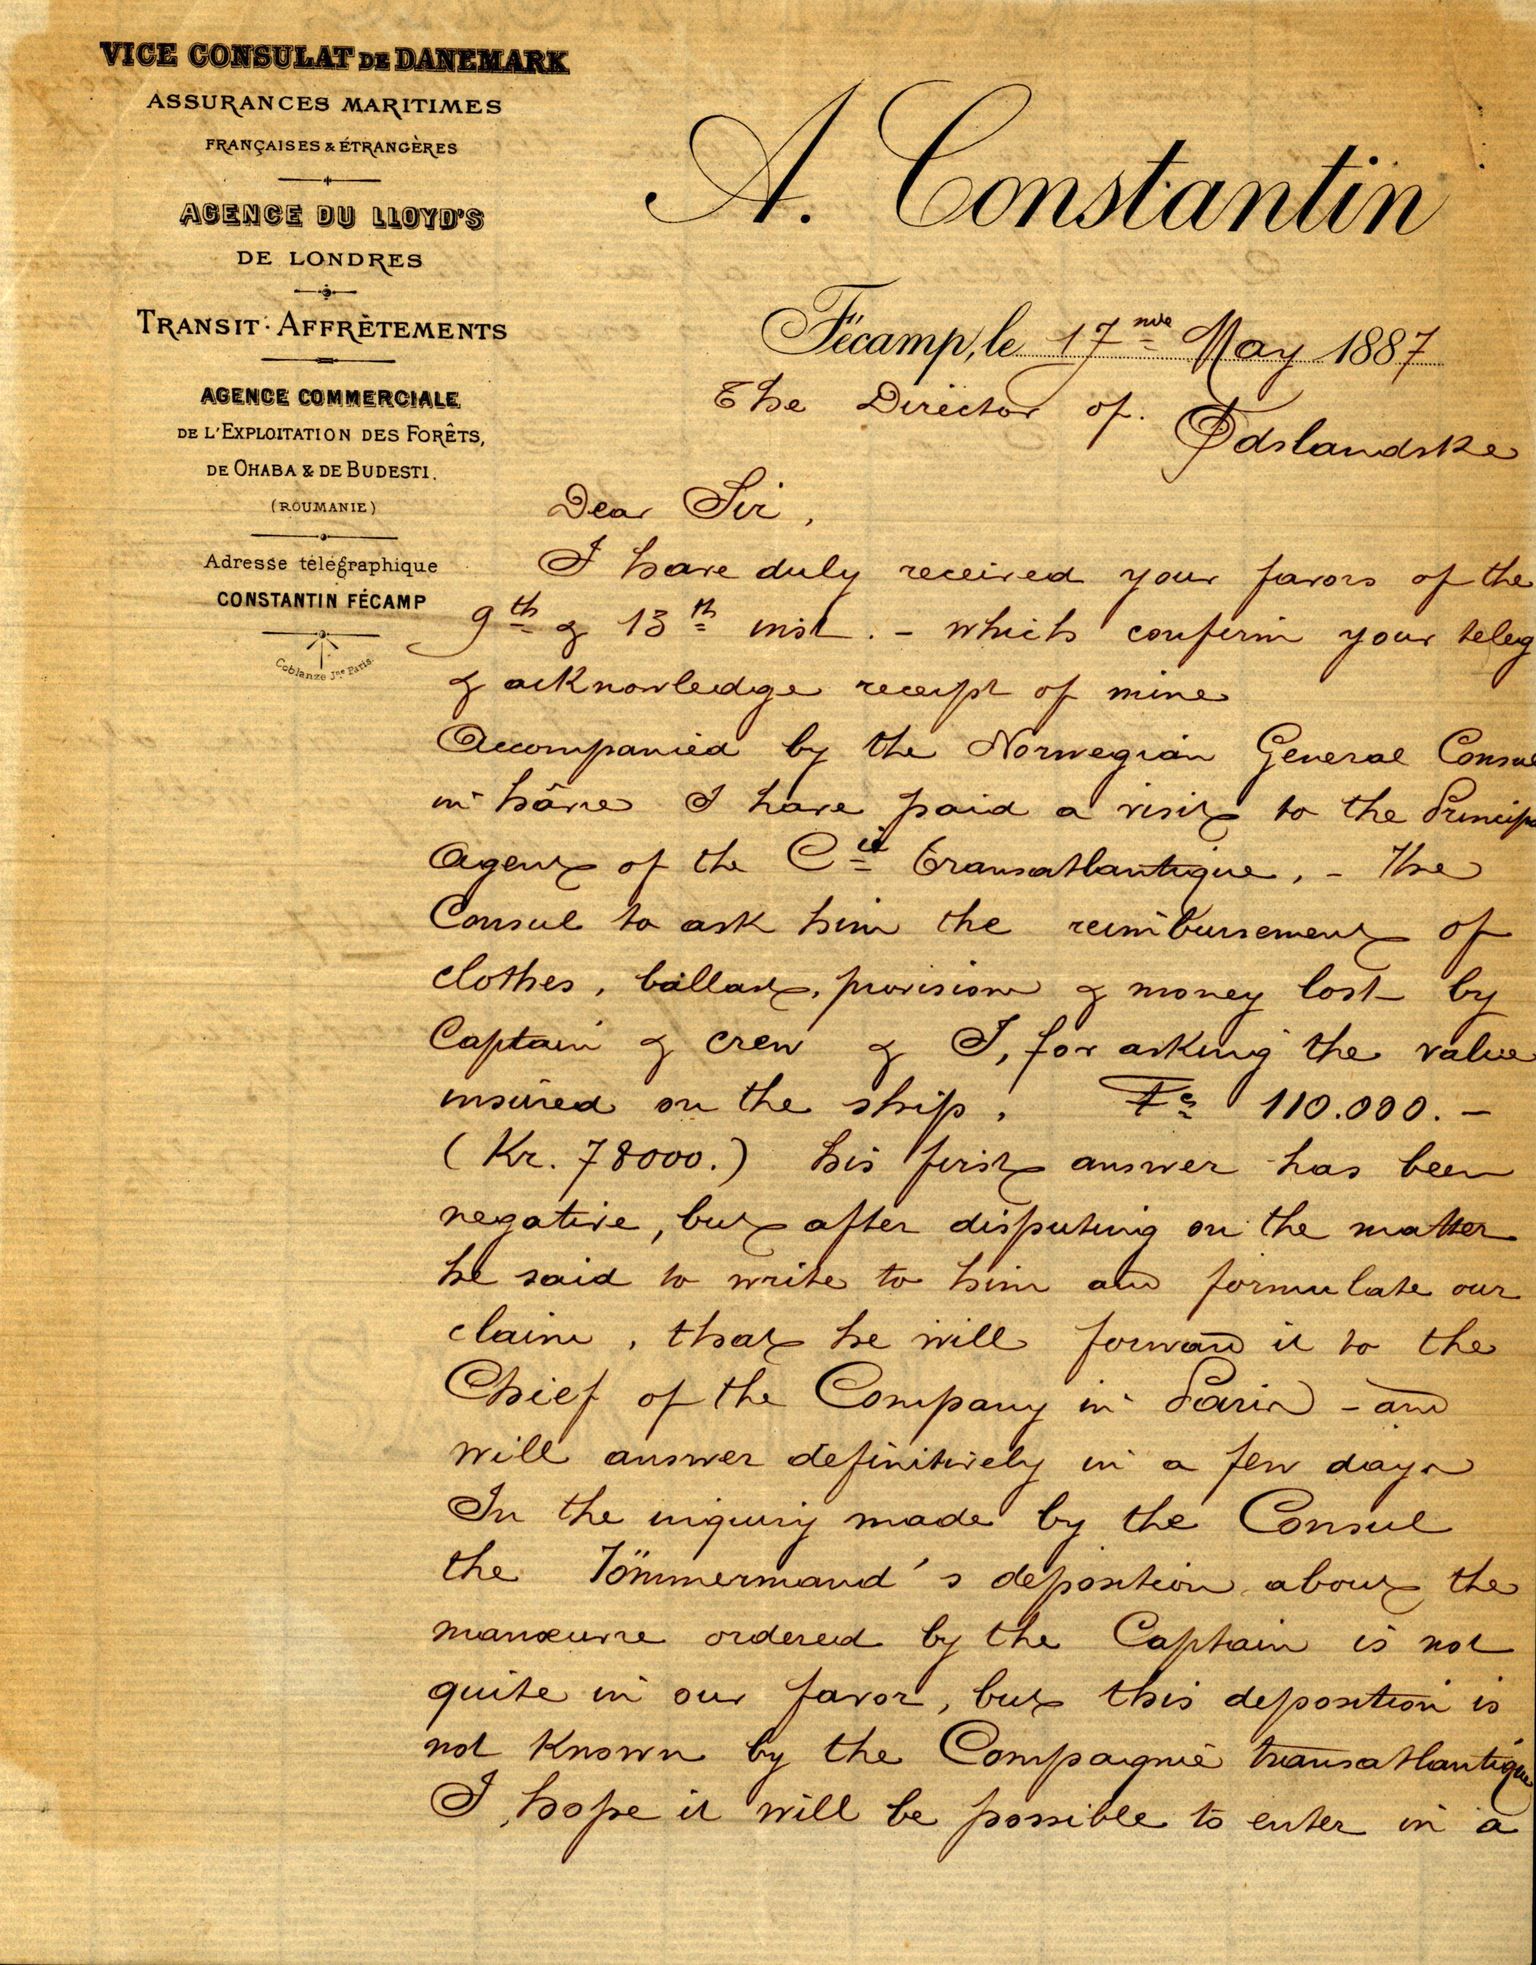 VICE CONSULAT DE DANEMARK
ASSURANCES MARITIMES
FRANÇAISES & ÉTRANGÈRES
AGENCE DU LLOYD'S
DE LONDRES
TRANSIT · AFFRÈTEMENTS
AGENCE COMMERCIALE
DE L'EXPLOITATION DES FORÊTS,
DE OHABA & DE BUDESTI.
(ROUMANIE)
Adresse télégraphique
CONSTANTIN FÉCAMP
Coblanze Jne Paris.
A. Constantin
Fécamp, le 17 May 1887
The Director of
Dear Sir,
I have duly received your favors of the
9th & 13th inst. - which confirm your teleg
& acknowledge receipt of mine
Accompanied by the Norwegian General Consul
in hâvre I have paid a visit to the Principa
Agent of the Cie transatlantique. - The
Consul to ask him the reimbursement of
clothes, ballast, provision & money lost by
Captain & crew & I, for asking the value
insured on the ship, Fcs 110.000. -
(Kr. 78000.) his first answer has been
negative, but after disputing on the matter
he said to write to him and formulate our
claim, that he will forward it to the
Chief of the Company in Paris - and
will answer definitively in a few days
In the inquiry made by the Consul
the Tömmermand's deposition about the
manœuvre ordered by the Captain is not
quite in our favor, but this deposition is
not known by the Compagnie transatlantique
I hope it will be possible to enter in a